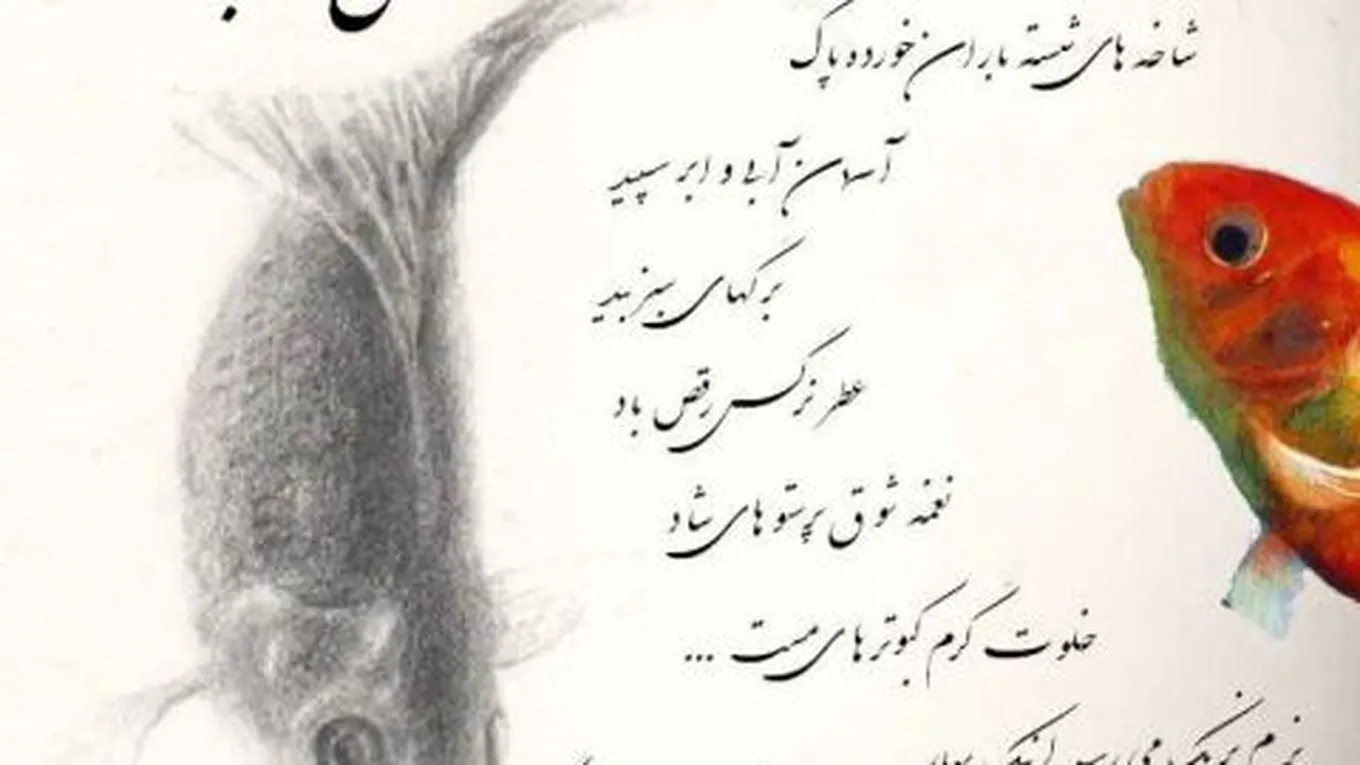 شاخه های شسته باران خورده پاک
آسمان آبی و ابر سپید
برگهای سبز بید
عطر نرگس رقص باد
نغمه شوق پرستو های شاد
خلوت گرم کبوتر های مست ...
نرم نرمک می رسد اینک بهار